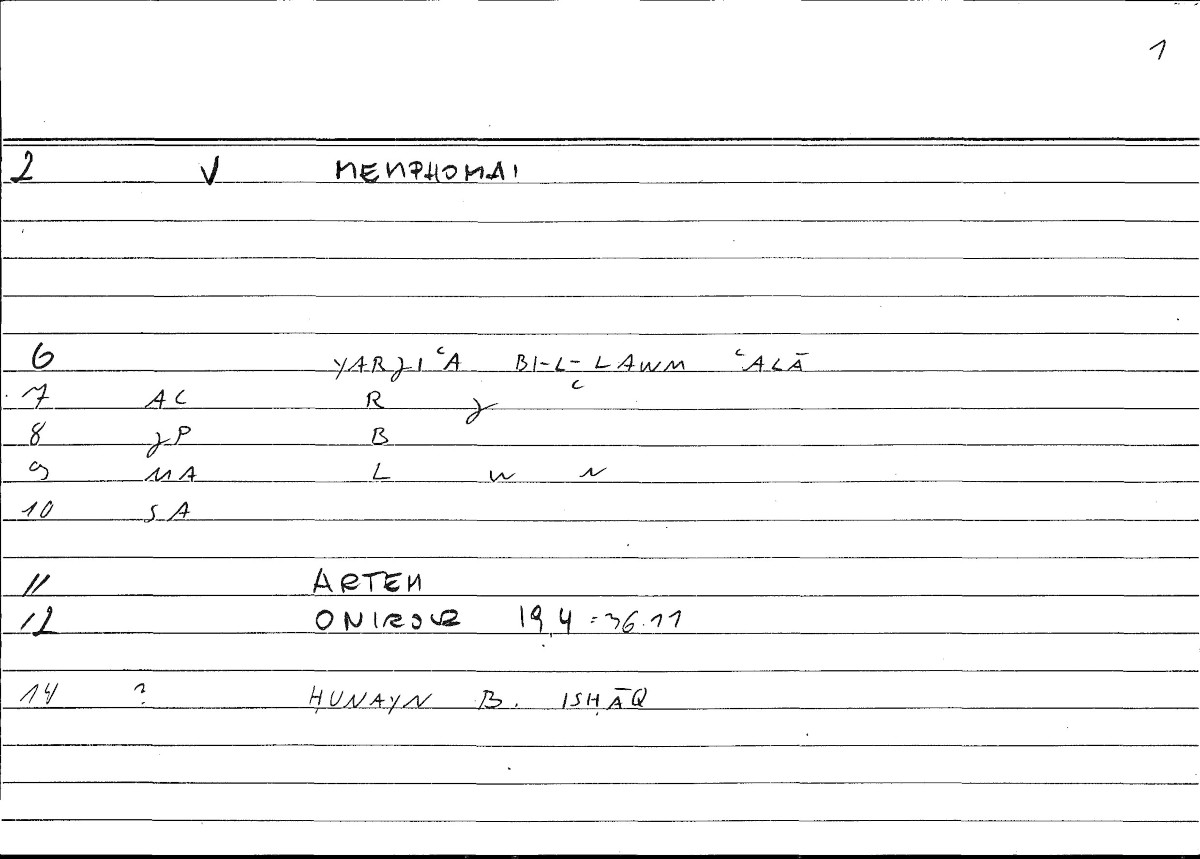 1
2 V MEMPHOMAI
6 YARJIʿA BI-L-LAWM ʿALĀ
7 AC R J ʿ
8 JP B
9 MA L W M
10 SA
11 ARTEM
12 ONIROCR 19,4 = 36.11
14 ? ḤUNAYN B. ISḤĀQ